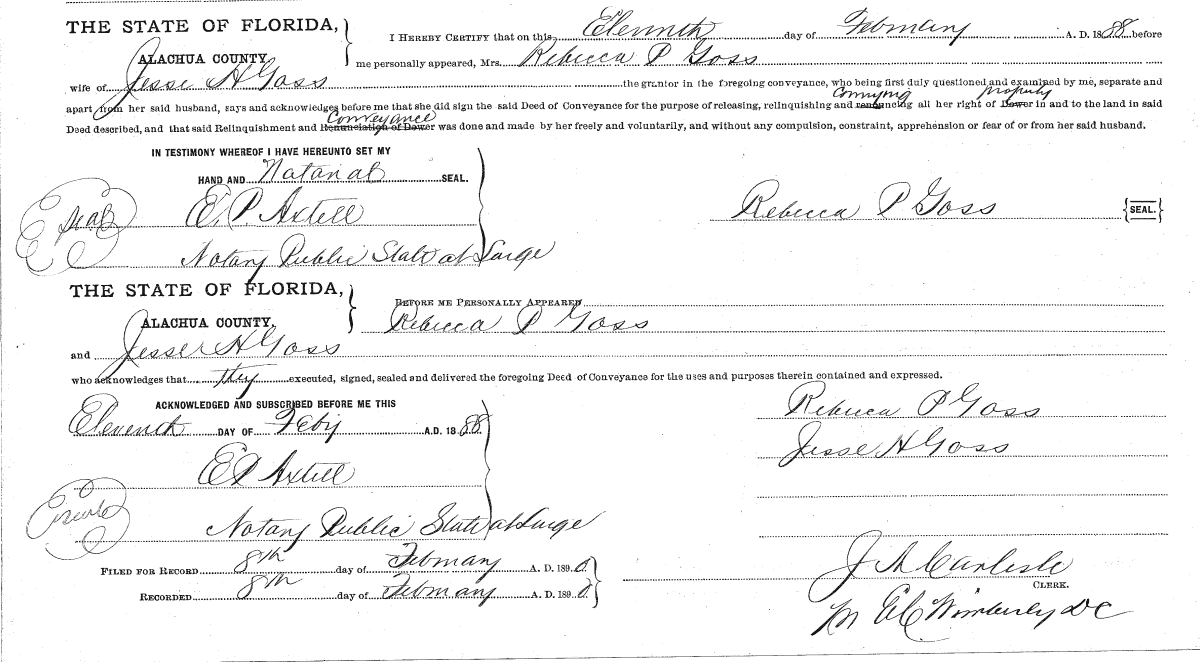 THE STATE OF FLORIDA,
I HEREBY CERTIFY that on this Eleventh day of February A. D. 1888 before
ALACHUA COUNTY
me personally appeared, Mrs. Rebecca P Goss
wife of Jesse H Goss the grantor in the foregoing conveyance, who being first duly questioned and examined by me, separate and
Conveying property
apart from her said husband, says and acknowledges before me that she did sign the said Deed of Conveyance for the purpose of releasing, relinquishing and renouncing all her right of Dower in and to the land in said
Conveyance
Deed described, and that said Relinquishment and Renunciation of Dower was done and made by her freely and voluntarily, and without any compulsion, constraint, apprehension or fear of or from her said husband.
IN TESTIMONY WHEREOF I HAVE HEREUNTO SET MY
HAND AND Notarial SEAL.
Seal E. P. Axtell Rebecca P Goss {SEAL.}
Notary Public State at Large
THE STATE OF FLORIDA,
BEFORE ME PERSONALLY APPEARED
ALACHUA COUNTY.
Rebecca P Goss
and Jesse H Goss
who acknowledges that they executed, signed, sealed and delivered the foregoing Deed of Conveyance for the uses and purposes therein contained and expressed.
ACKNOWLEDGED AND SUBSCRIBED BEFORE ME THIS
Rebecca P Goss
Eleventh DAY OF Feby A.D. 1888
Jesse H Goss
E P Axtell
Notary Public State at Large
FILED FOR RECORD 8th day of February A. D. 1890
J A Carlisle
CLERK.
RECORDED 8th day of February A. D. 1890
Wimberley DC